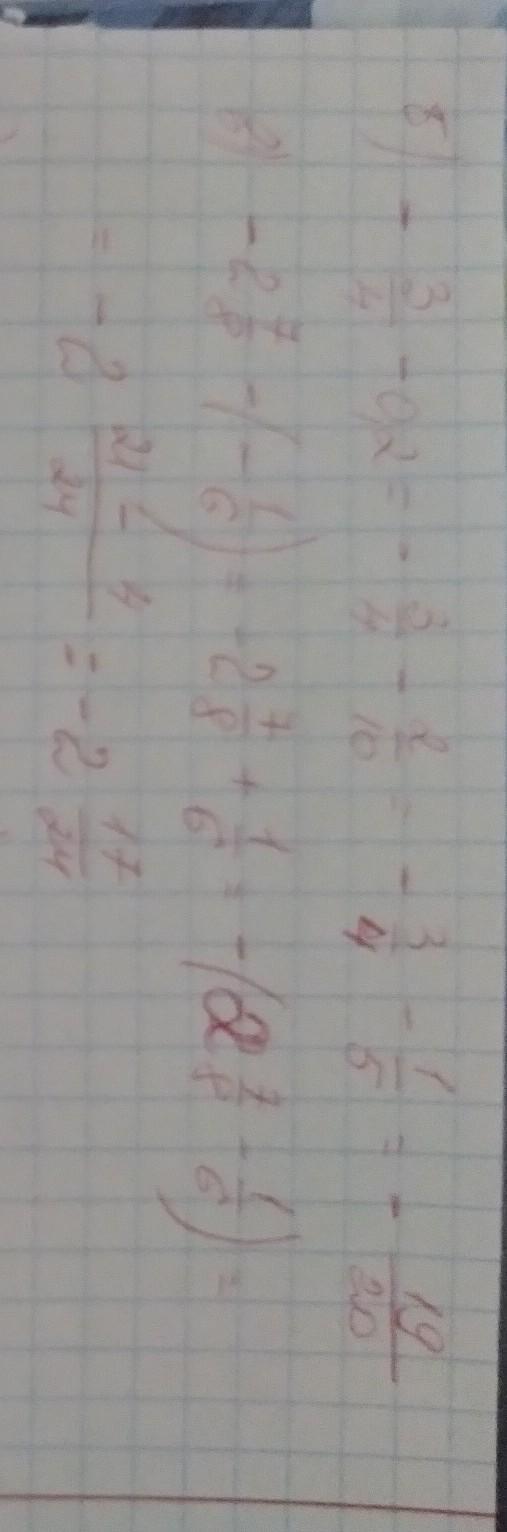 5) - 3/4 - 0,2 = - 3/4 - 2/10 = - 3/4 - 1/5 = - 19/20
2) - 2 7/8 - (- 1/6) = - 2 7/8 + 1/6 = - (2 7/8 - 1/6) =
= - 2 (21 - 4)/24 = - 2 17/24